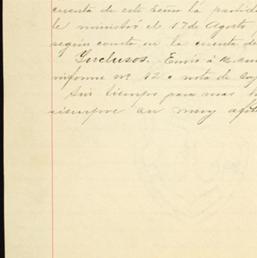 cuenta de este Señor la partida
le ministré el 17 de Agosto,
según consta en la cuenta de
Inclusos. Envio á
informe nº 42 o nota de
Sin tiempo para mas
siempre su muy